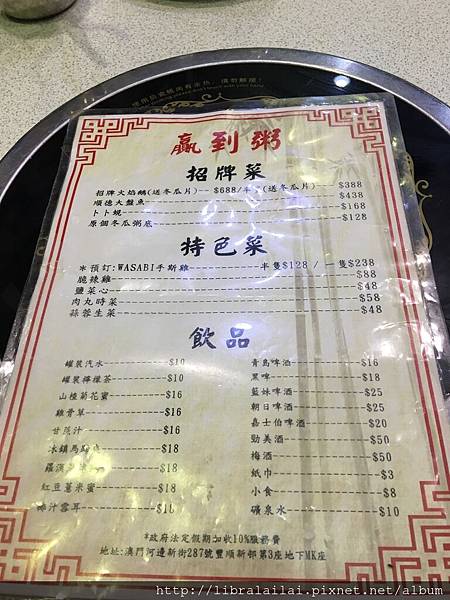 赢到粥
招牌菜
招牌火焰鵝(送冬瓜片)--$688/半 (送冬瓜片)---$388
順德大盤魚 $438
卜卜蜆 $168
原個冬瓜粥底 $128
特色菜
*預訂:WASABI手斯雞 半隻$128 / 一隻$238
脆辣雞 $88
鹽菜心 $48
肉丸時菜 $58
蒜蓉生菜 $48
飲品
罐裝汽水 $10
罐裝檸檬茶 $10
山楂菊花蜜 $16
雞骨草 $16
甘蔗汁 $16
冰鎮馬蹄 $18
羅漢 $18
紅豆薏米蜜 $18
汁雪耳 $18
青島啤酒 $16
黑啤 $18
藍妹啤酒 $25
朝日啤酒 $25
嘉士伯啤酒 $20
勁美酒 $50
梅酒 $50
紙巾 $3
小食 $8
礦泉水 $10
*政府法定假期加收10%服務費
地址:澳門河邊新街287號豐順新邨第3座地下MK座
http://libralailai.pixnet.net/album